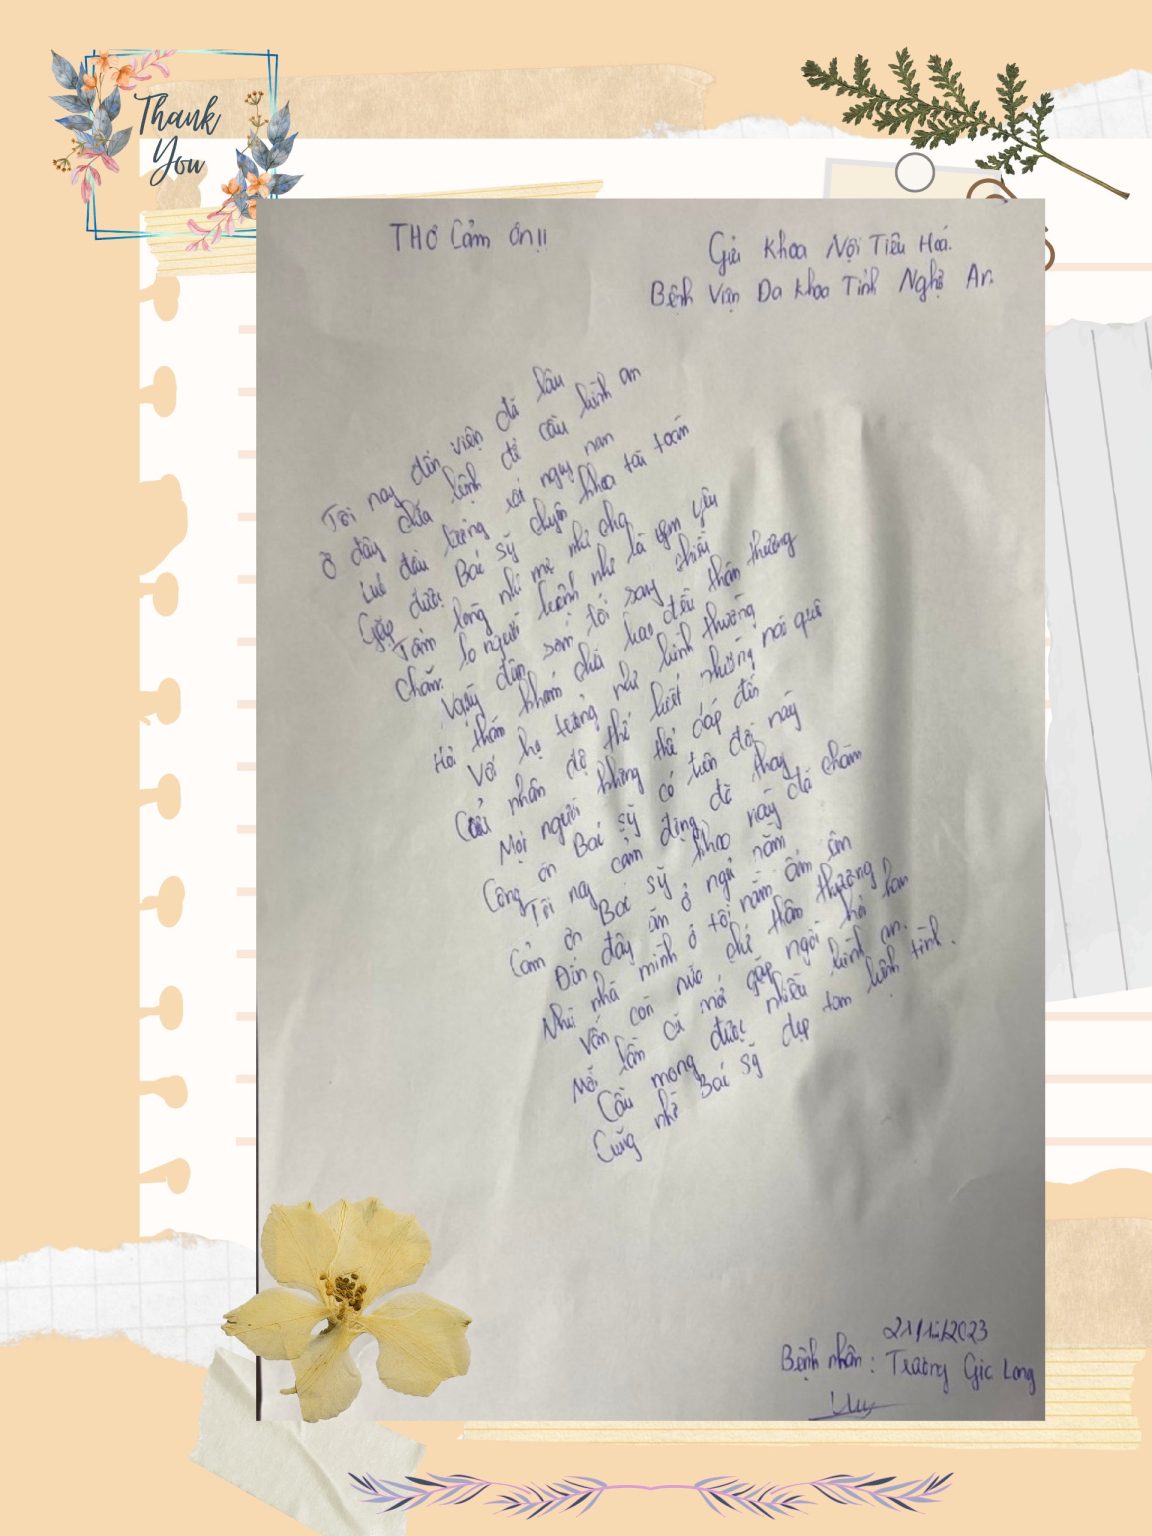 Thank
You
THƠ Cảm ơn!!
Gửi Khoa Nội Tiêu Hoá.
Bệnh Viện Đa Khoa Tỉnh Nghệ An.
Tôi nay đến viện đã lâu
Ở đây chữa bệnh để cầu bình an
Lúc đầu tưởng rất nguy nan
Gặp được Bác sỹ chuyên khoa tài toán
Tấm lòng như mẹ như cha
Chăm lo người bệnh như là yêu
Vậy đân sớm tối sang chiều
Hỏi thăm khám chữa bao điều thân thương
Với họ tưởng như bình thường
Cứu nhân độ thế biết nhường nào quê
Mọi người không thể đáp đền
Công ơn Bác sỹ có trên đời này
Tôi nay cảm động đã thay
Cảm ơn Bác sỹ khoa này đã chăm
Đến đây ăn ở ngủ nằm
Như nhà mình ở tôi nằm ấm êm
Vẫn còn nữa chứ thân thương
Mỗi lần cứ mở gặp ngồi hỏi han
Cầu mong được nhiều bình an.
Cũng nhờ Bác sỹ đẹp tam bệnh tình.
21/12/2023
Bệnh nhân: Trương Gic Long